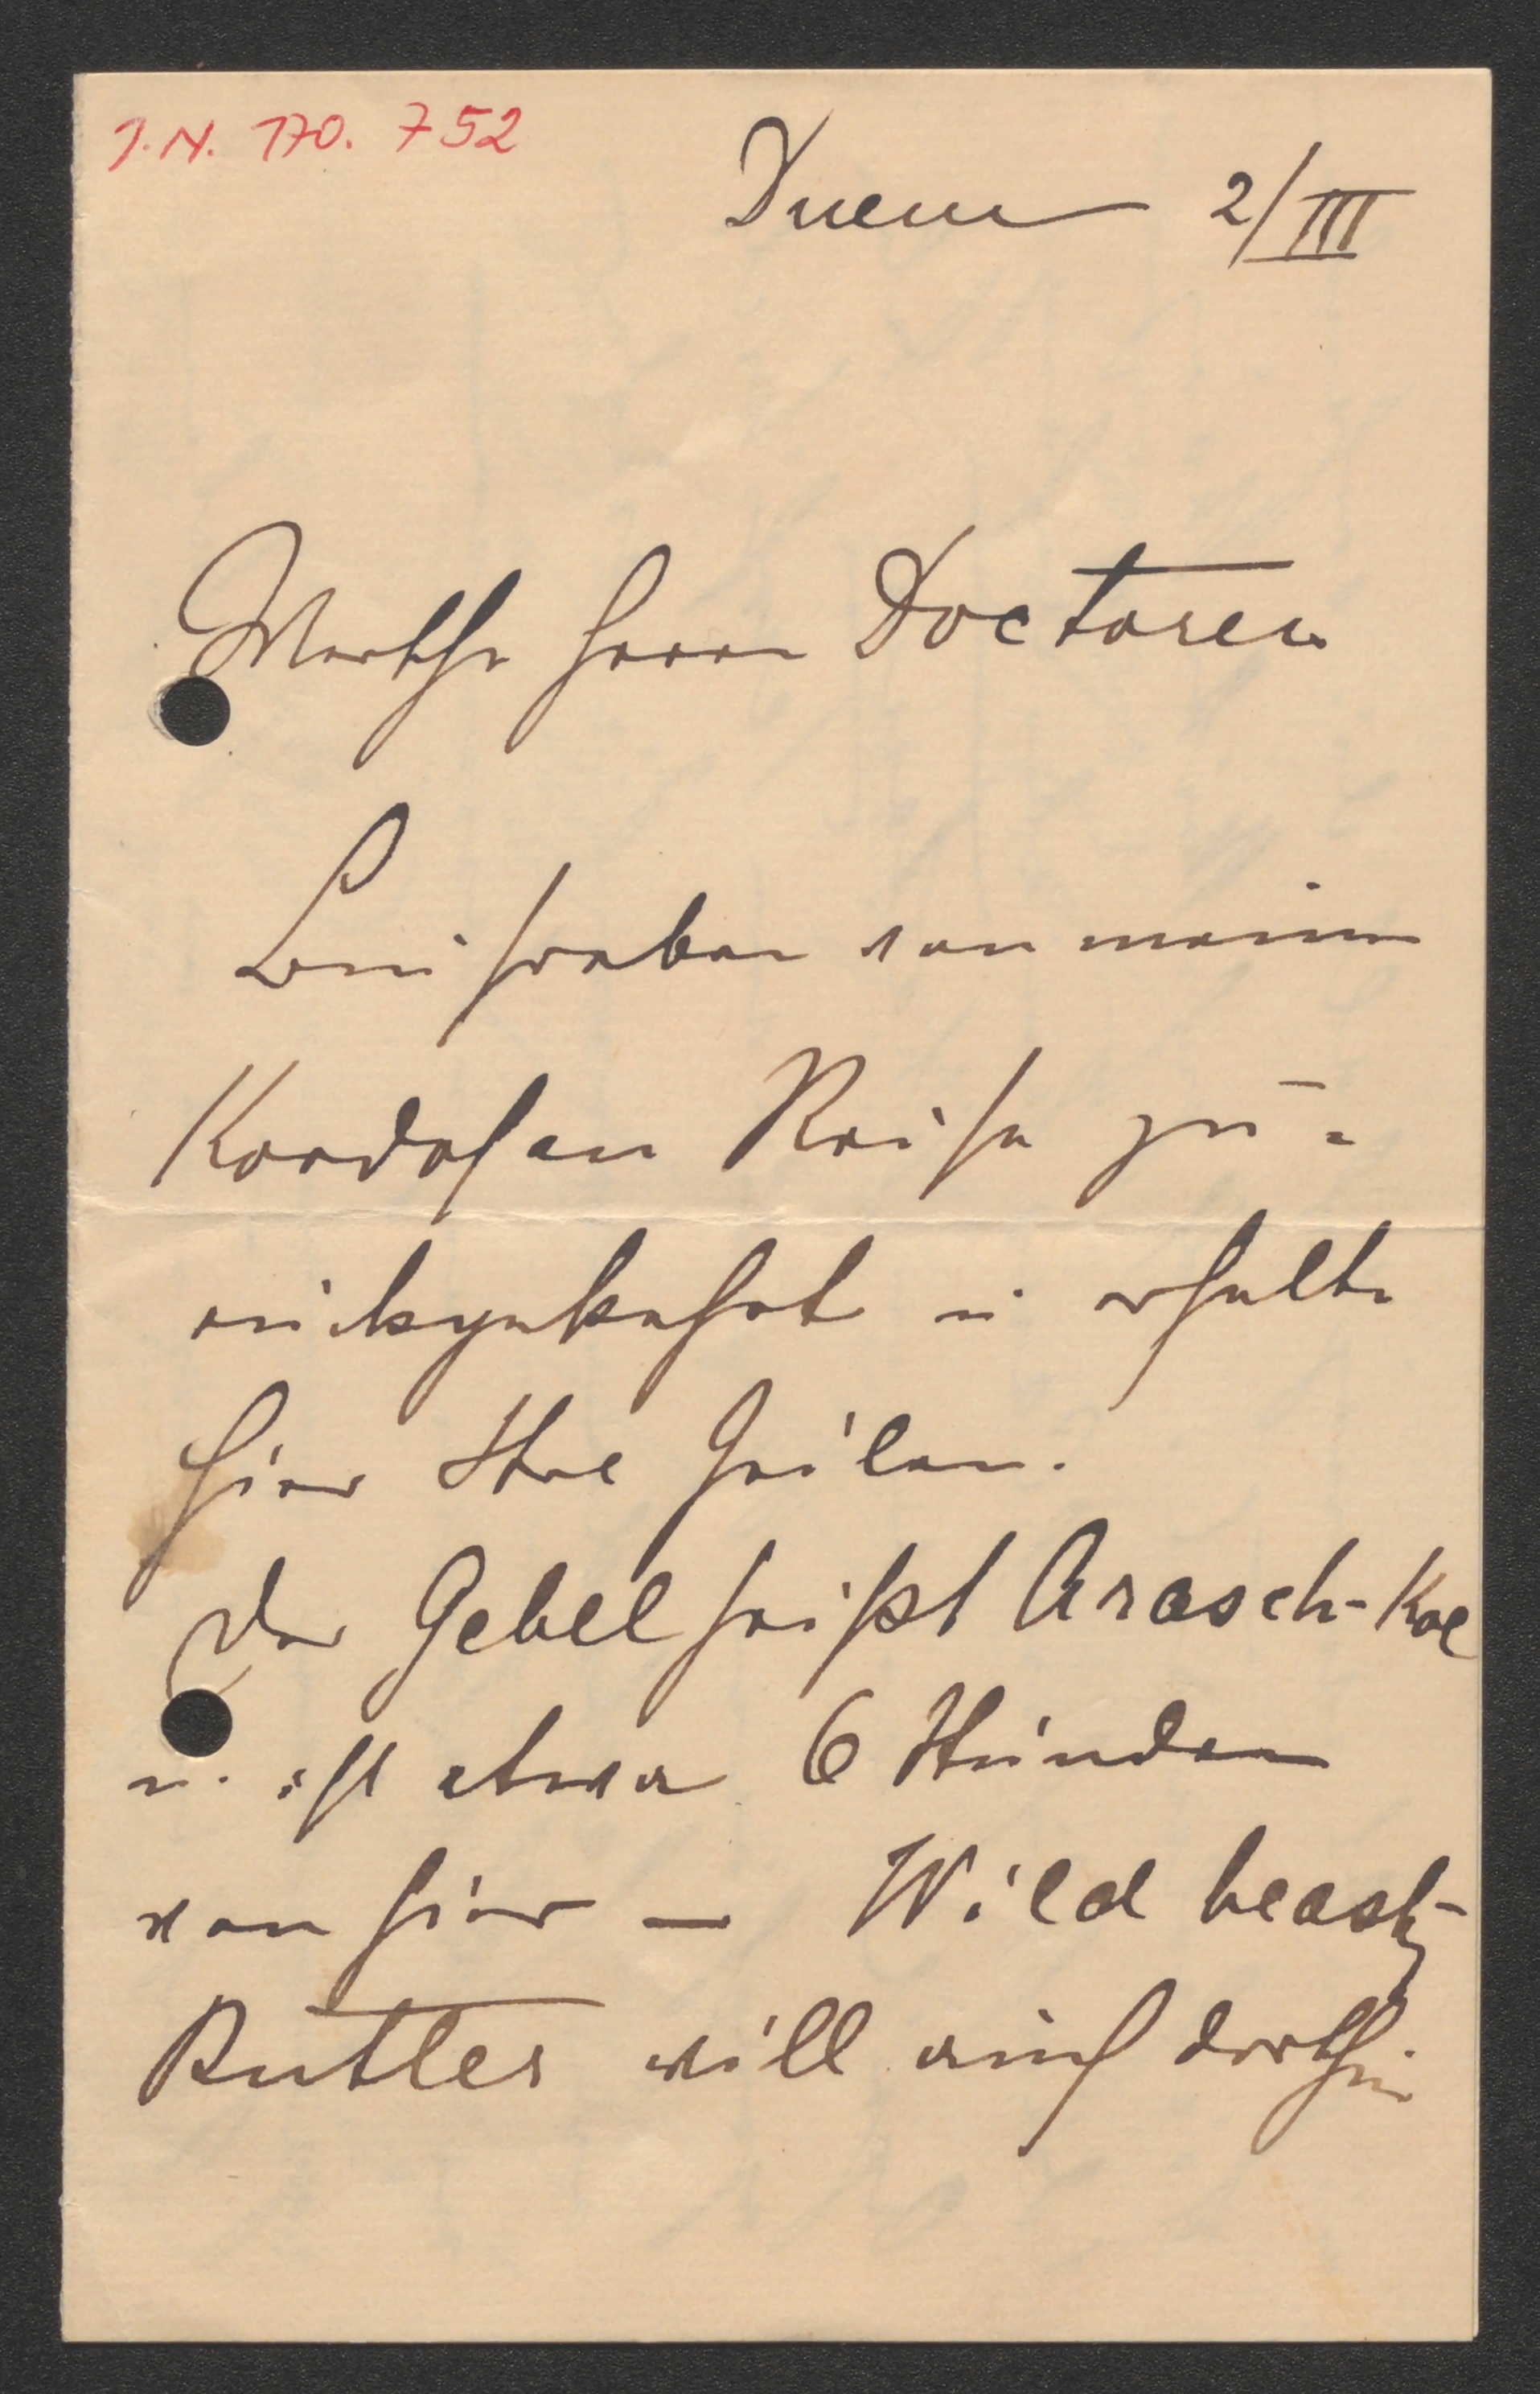 J.N. 170.752
Duem 2/III
Werthe Herren Doctoren
Bin soeben von meiner
Kordofan Reise zu=
rückgekehrt u erhalte
hier Ihre Zeilen.
Der Gebel heißt Arasch-Kol
u. ist etwa 6 Stunden
von hier — Wild beasty-
Butler will auch dorthin